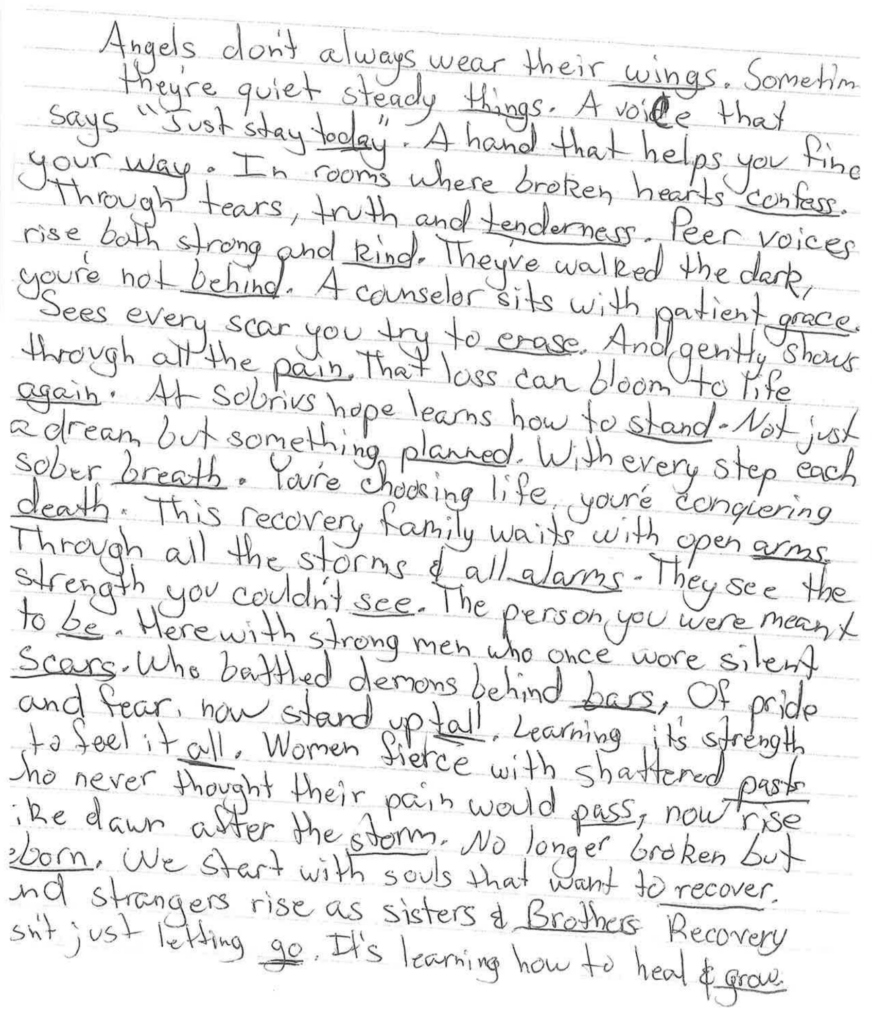 Angels don't always wear their wings. Sometim
they're quiet steady things. A voice that
says "Just stay today". A hand that helps you fine
your way. In rooms where broken hearts confess.
Through tears, truth and tenderness. Peer voices
rise both strong and kind. They've walked the dark,
you're not behind. A counselor sits with patient grace.
Sees every scar you try to erase. And gently shows
through all the pain. That loss can bloom to life
again. At Sobrius hope learns how to stand. Not just
a dream, but something planned. With every step each
sober breath. You're choosing life, you're conqiering
death. This recovery family waits with open arms
Through all the storms & all alarms. They see the
strength you couldn't see. The person you were meant
to be. Here with strong men who once wore silent
Scars. Who battled demons behind bars, Of pride
and fear, now stand up tall. Learning it's strength
to feel it all. Women fierce with shattered pasts
ho never thought their pain would pass, now rise
ike dawn after the storm. No longer broken but
eborn. We start with souls that want to recover.
nd strangers rise as sisters & Brothers Recovery
sn't just letting go. It's learning how to heal & grow.